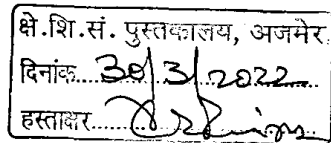 क्षे.शि.सं. पुस्तकालय, अजमेर
दिनांक...30/3/2022...
हस्ताक्षर......